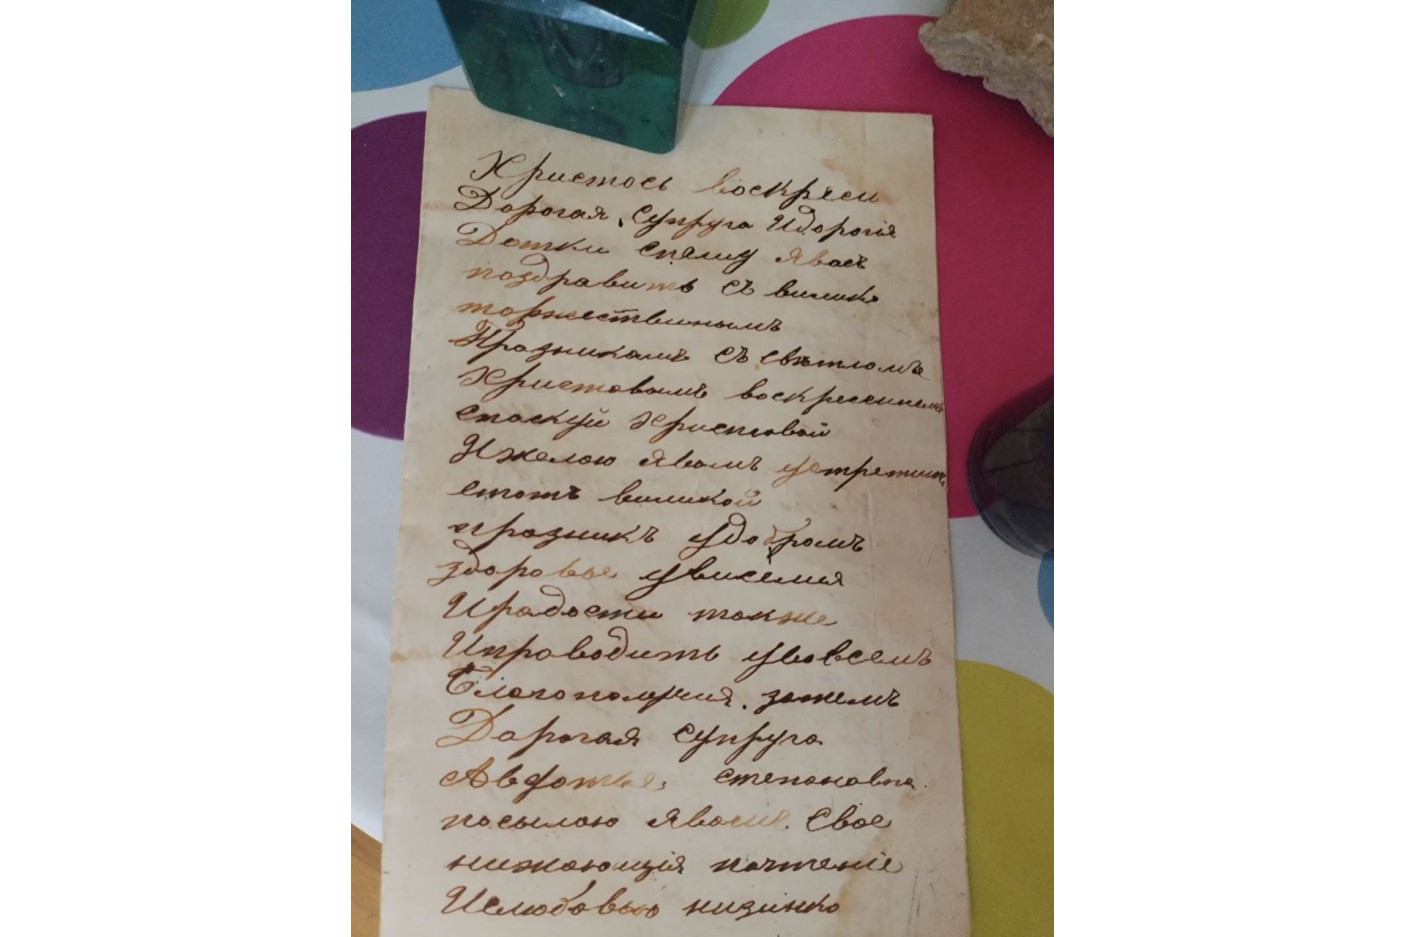 Христось воскреси
Дорогая супруга Идорогія
Дотки спешу Явасъ
поздравить съ велико
торжественымъ
Празникамъ съ светломъ
Христовымъ воскресени
спасхуй Христовай
Ижелаю Явамъ устретит
етотъ великой
празникъ удобромъ
здоровье увиселия
Ирадости также
Ипроводить увовсемъ
Благополучия. затемъ
Дарогая супруга
Авдотья, степановна.
посылаю Явасъ. Свое
нижающия почтеніе
Ислюбовью низинко